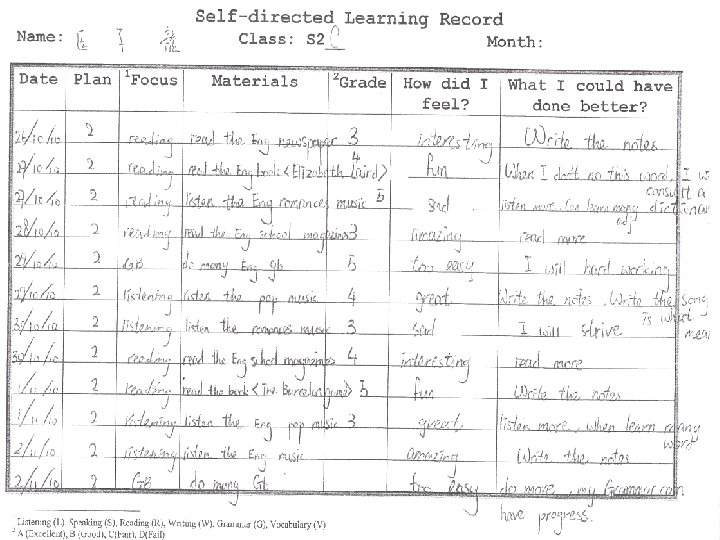 Self-directed Learning Record
Name: Class: S2C Month:
Date Plan ¹Focus Materials ²Grade How did I feel? What I could have done better?
26/10/10 2 reading read the Eng newspaper 3 interesting Write the notes
27/10/10 2 reading read the Eng book <Elizabeth Laird> 4 fun When I don't no this word, I w consult a dictionar
27/10/10 2 reading listen the Eng romances music 5 sad listen more, learn many
28/10/10 2 reading read the Eng school magazines 3 amazing read more
29/10/10 2 GB do many Eng gb 5 too easy I will hard working
29/10/10 2 listening listen the pop music 4 great Write the notes, Write the song is what mea
30/10/10 2 listening listen the romances music 3 sad I will strive
30/10/10 2 reading read the Eng school magazines 4 interesting read more
1/11/10 2 reading read the book <The game> 5 fun Write the notes
1/11/10 2 listening listen the Eng pop music 3 great listen more, when learn many word
2/11/10 2 listening listen the Eng music amazing Write the notes
2/11/10 2 GB do many Gb too easy do more, my Grammar can have progress.
Listening (L), Speaking (S), Reading (R), Writing (W), Grammar (G), Vocabulary (V)
² A (Excellent), B (Good), C(Fair), D(Fail)